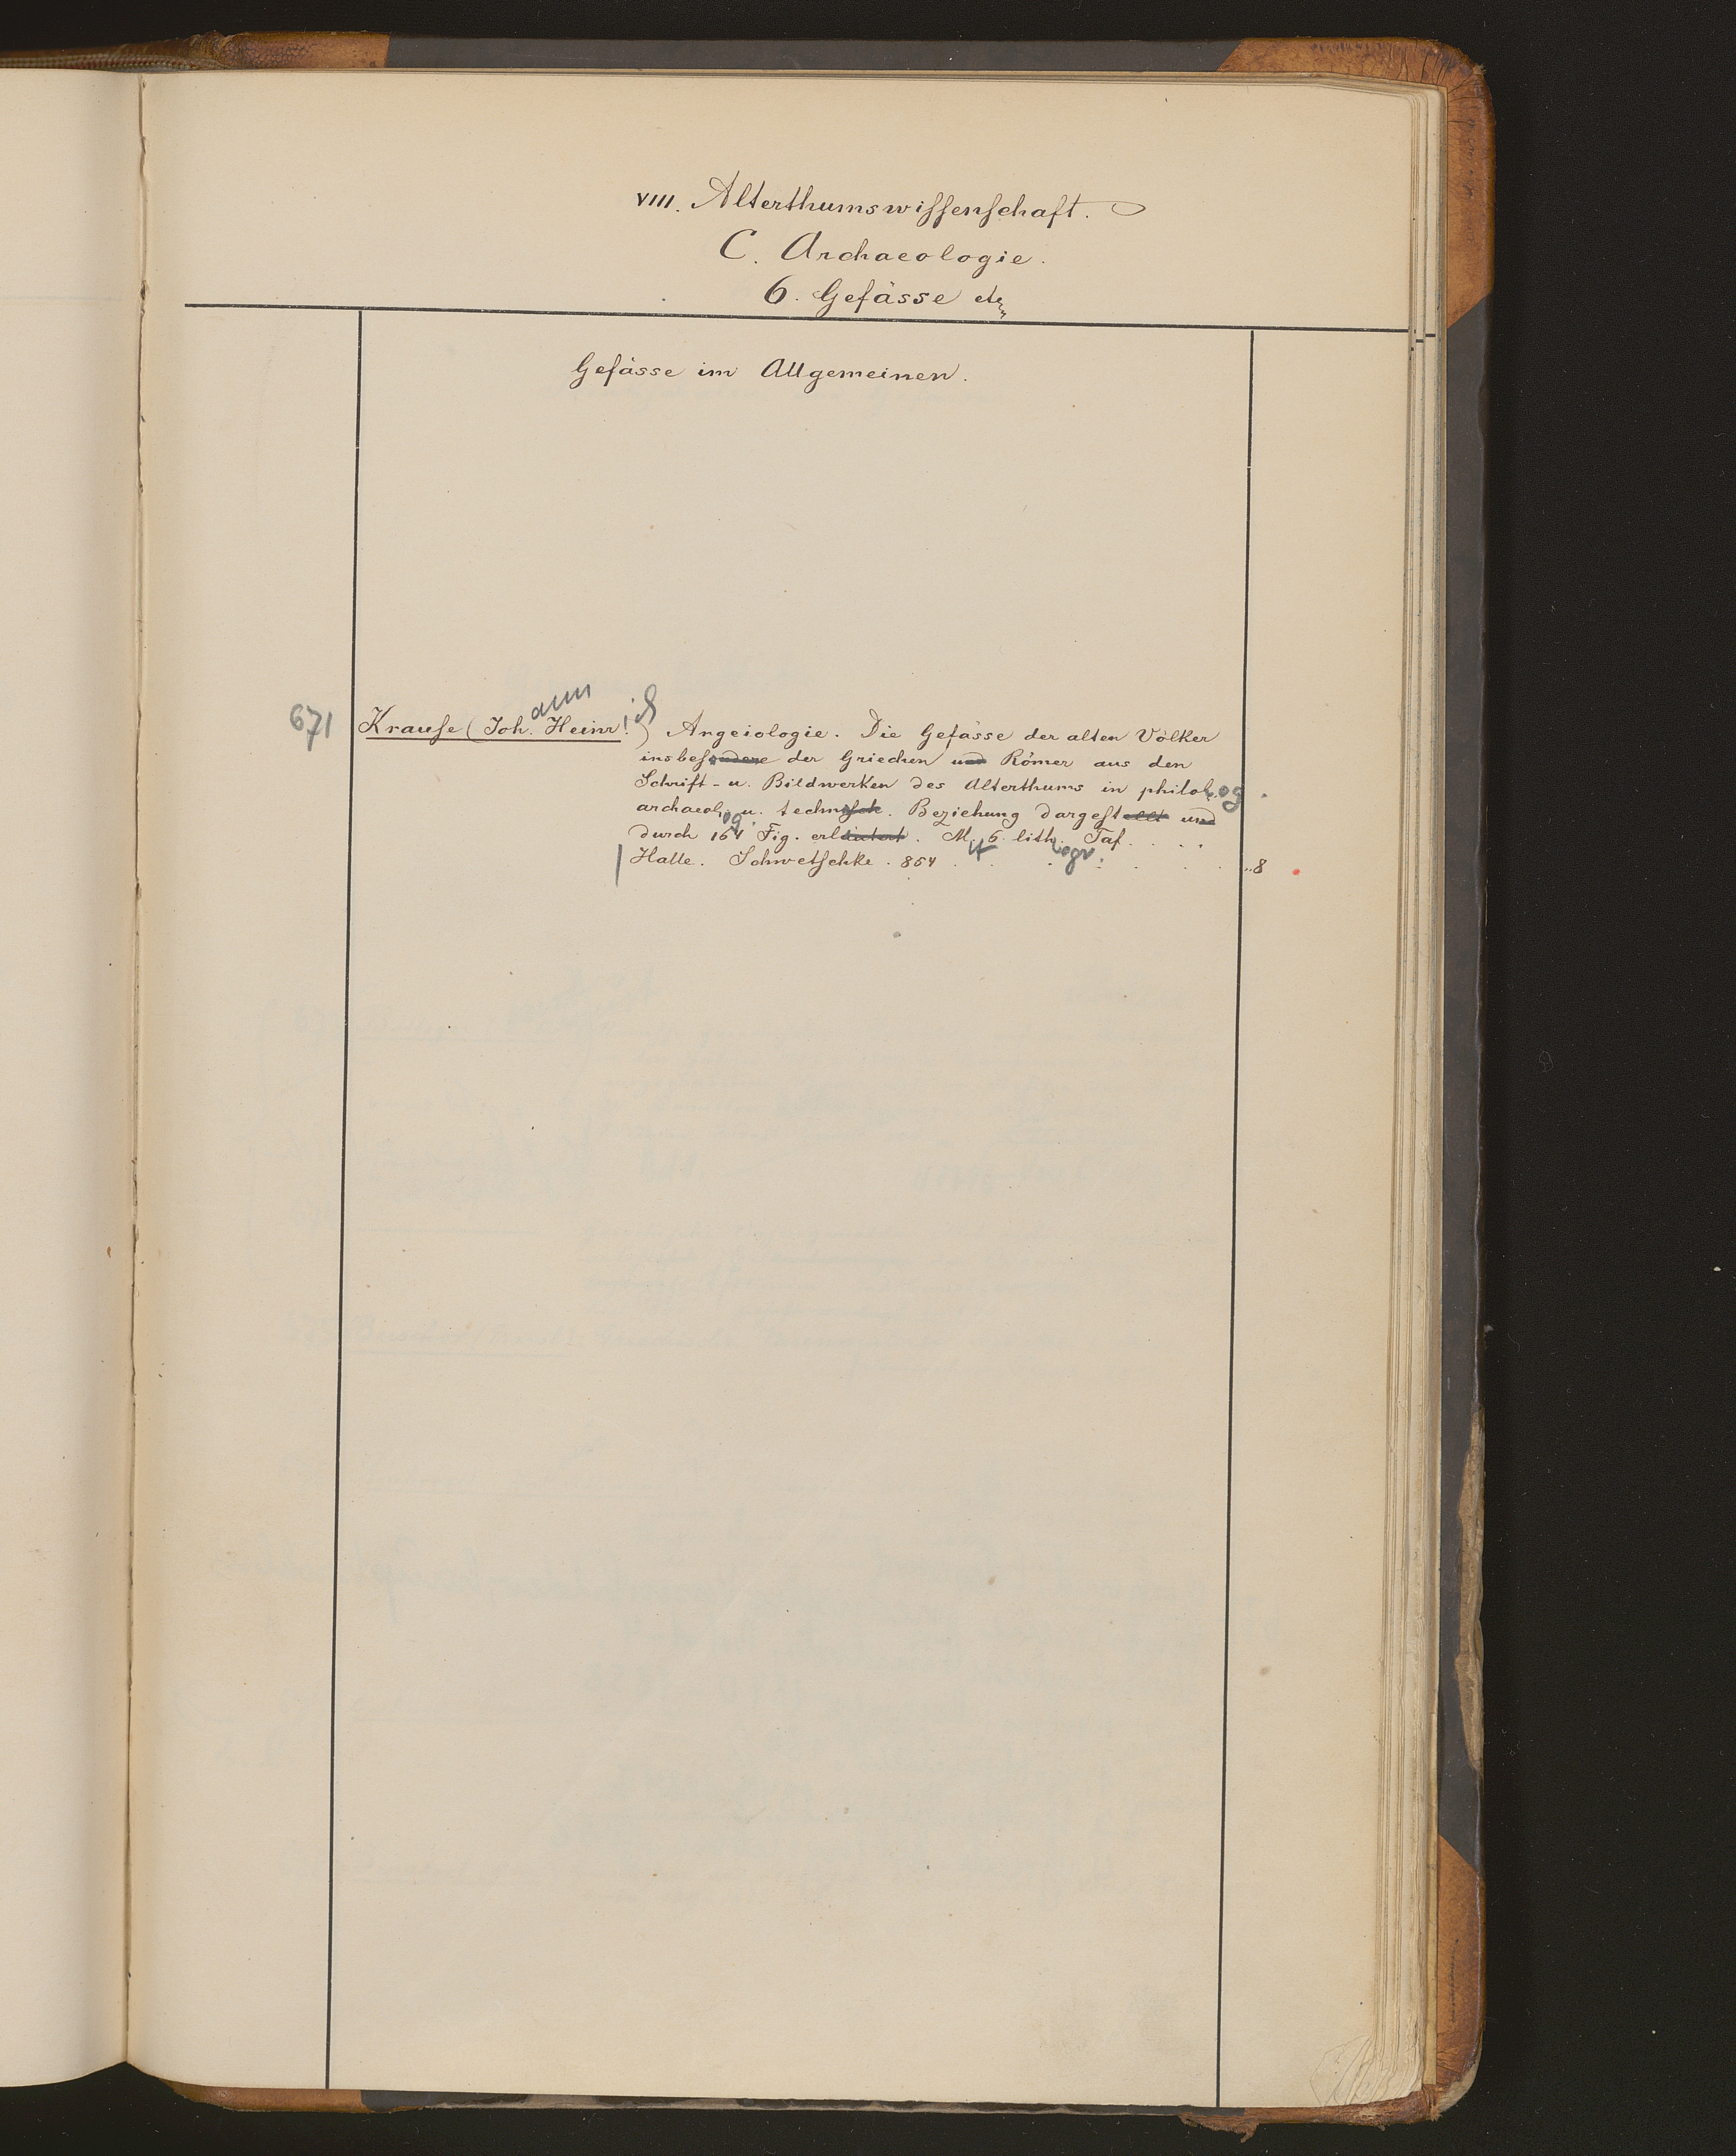 VIII. Alterthumswissenschaft.
C. Archaeologie.
6. Gefässe etc.
Gefässe im Allgemeinen.
ann ich
671 Krause (Joh. Heinr.) Angeiologie. Die Gefässe der alten Völker
insbesondere der Griechen und Römer aus den
Schrift- u. Bildwerken des Alterthums in philol. og.
archaeol. og. u. technisch. Beziehung dargestellt und
durch 164 Fig. erläutert. M. it 6 lith. ogr. Taf. . . . .
Halle. Schwetschke. 854 . . . . . . . "8